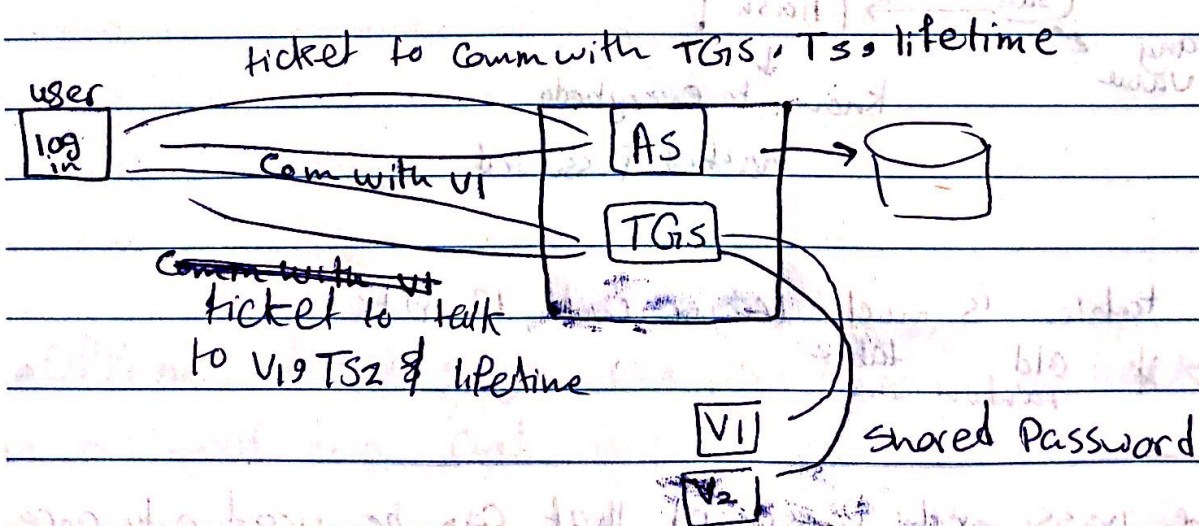 ticket to Comm with TGS, TS, lifetime
user
log
in
AS
Com with V1
TGS
Comm with V1
ticket to talk
to V1, TS2 & lifetime
V1
Shared Password
V2